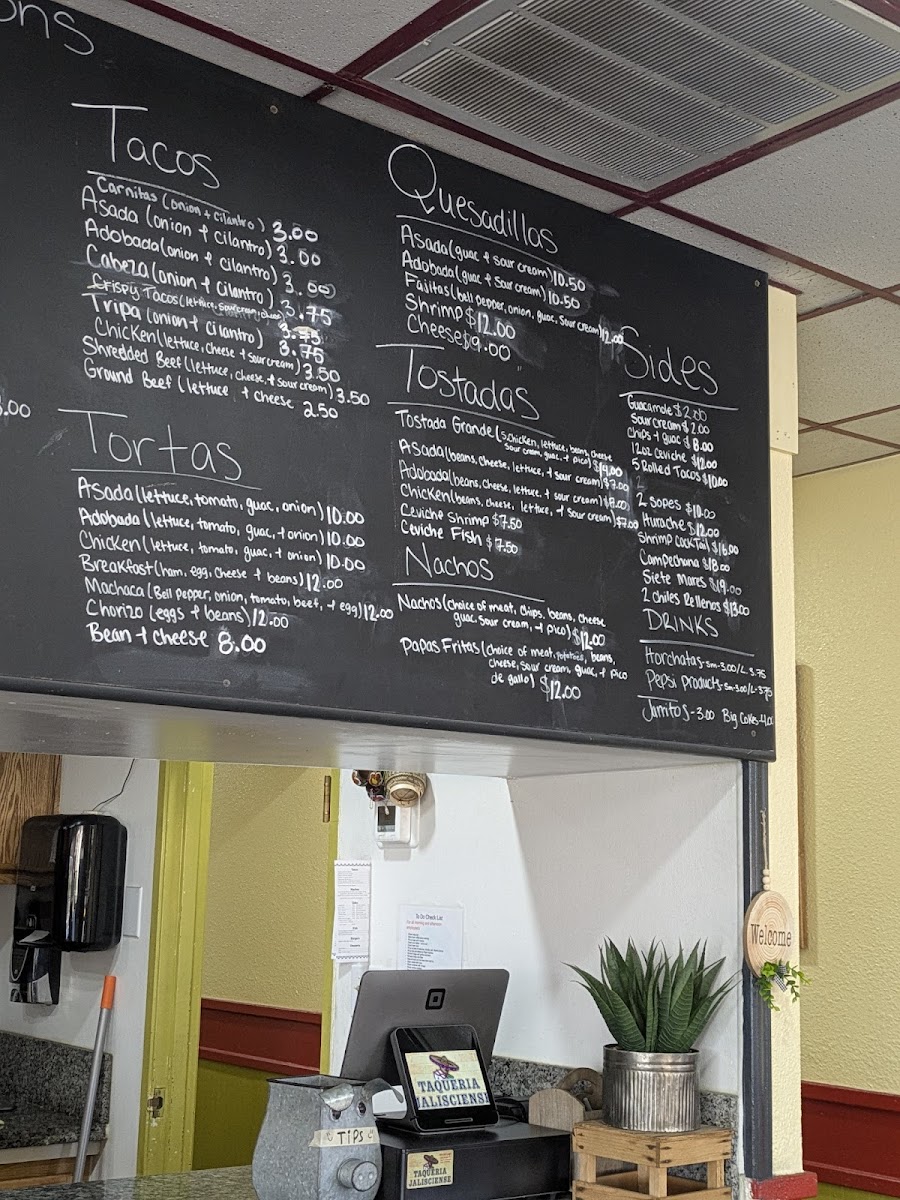 ons
3.00
Tacos
Carnitas (onion + cilantro) 3.00
Asada (onion + cilantro) 3.00
Adobada (onion + cilantro) 3.00
Cabeza (onion + cilantro) 3.75
Crispy Tacos (lettuce, sour cream, cheese) 3.75
Tripa (onion + cilantro) 3.75
Chicken (lettuce, cheese + sour cream) 3.50
Shredded Beef (lettuce, cheese, + sour cream) 3.50
Ground Beef (lettuce + cheese 2.50
Tortas
Asada (lettuce, tomato, guac, onion) 10.00
Adobada (lettuce, tomato, guac, + onion) 10.00
Chicken (lettuce, tomato, guac, + onion) 10.00
Breakfast (ham, egg, cheese + beans) 12.00
Machaca (Bell pepper, onion, tomato, beef, + egg) 12.00
Chorizo (eggs + beans) 12.00
Bean + cheese 8.00
Quesadillas
Asada (guac + sour cream) 10.50
Adobada (guac + sour cream) 10.50
Fajitas (bell pepper, onion, guac, sour cream) 12.00
Shrimp $12.00
Cheese $9.00
Tostadas
Tostada Grande (chicken, lettuce, beans, cheese
sour cream, guac, + pico) $14.00
Asada (beans, cheese, lettuce, + sour cream) $7.00
Adobada (beans, cheese, lettuce, + sour cream) $7.00
Chicken (beans, cheese, lettuce, + sour cream) $7.00
Ceviche Shrimp $7.50
Ceviche Fish $7.50
Nachos
Nachos (choice of meat, chips, beans, cheese
guac, sour cream, + pico) $12.00
Papas Fritas (choice of meat, potatoes, beans,
cheese, sour cream, guac, + pico
de gallo) $12.00
Sides
Guacamole $2.00
Sour cream $2.00
Chips + guac $8.00
12oz Ceviche $12.00
5 Rolled Tacos $10.00
2 Sopes $10.00
Hurache $12.00
Shrimp cockTail $16.00
Campechana $18.00
Siete Mares $19.00
2 chiles Rellenos $13.00
DRINKS
Horchatas - sm - 3.00/L 3.75
Pepsi products - sm - 3.00/L - 3.75
Jarritos - 3.00 Big Cokes - 4.00
To Do Check List
Welcome
TAQUERIA
JALISCIENSE
TIPS
TAQUERIA
JALISCIENSE